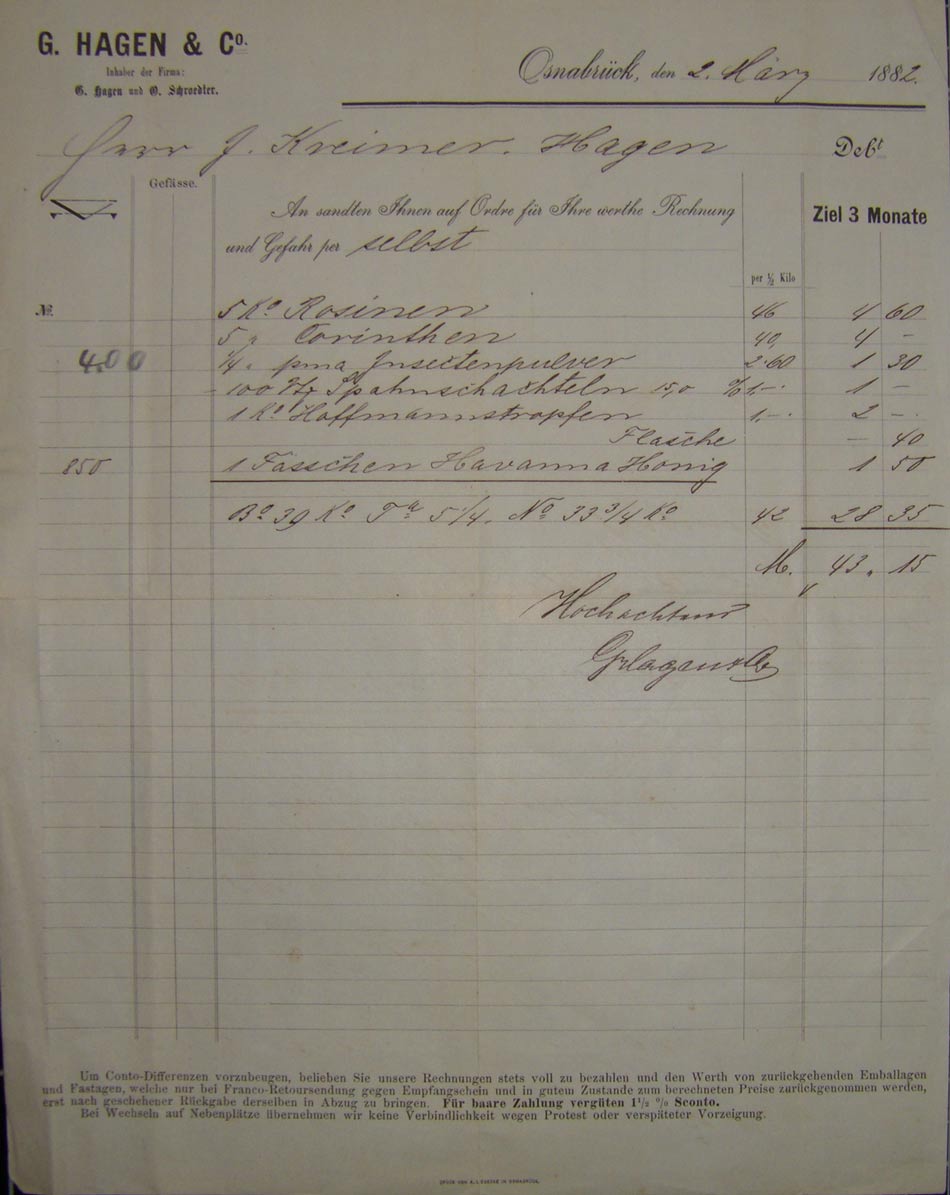 G. HAGEN & Co.
Inhaber der Firma:
G. Hagen und O. Schroedter.
Osnabrück, den 2. März 1882.
Herr J. Kreimer. Hagen Debt
Gefässe.
An sandten Ihnen auf Ordre für Ihre werthe Rechnung
Ziel 3 Monate
und Gefahr per selbst
per ½ Kilo
№ 5 Ko Rosinen 46 4 60
5 " Corinthen 40 4 –
4.00 ¼ " pma Insectenpulver 2.60 1 30
100 Spahnschachteln 15,0 % 1.– 1 –
1 Ko Hoffmannstropfen 1.– 2 –
Flasche – 40
850 1 Fässchen Havanna Honig 1 50
Bo 39 Ko Ta 5 1/4. No 33 3/4 Ko 42 28 35
M. 43. 15
Hochachtend
G Hagen & Co
Um Conto-Differenzen vorzubeugen, belieben Sie unsere Rechnungen stets voll zu bezahlen und den Werth von zurückgehenden Emballagen
und Fastagen, welche nur bei Franco-Retoursendung gegen Empfangschein und in gutem Zustande zum berechneten Preise zurückgenommen werden,
erst nach geschehener Rückgabe derselben in Abzug zu bringen. Für baare Zahlung vergüten 1½ % Sconto.
Bei Wechseln auf Nebenplätze übernehmen wir keine Verbindlichkeit wegen Protest oder verspäteter Vorzeigung.
DRUCK VON A. LIESECKE IN OSNABRÜCK.